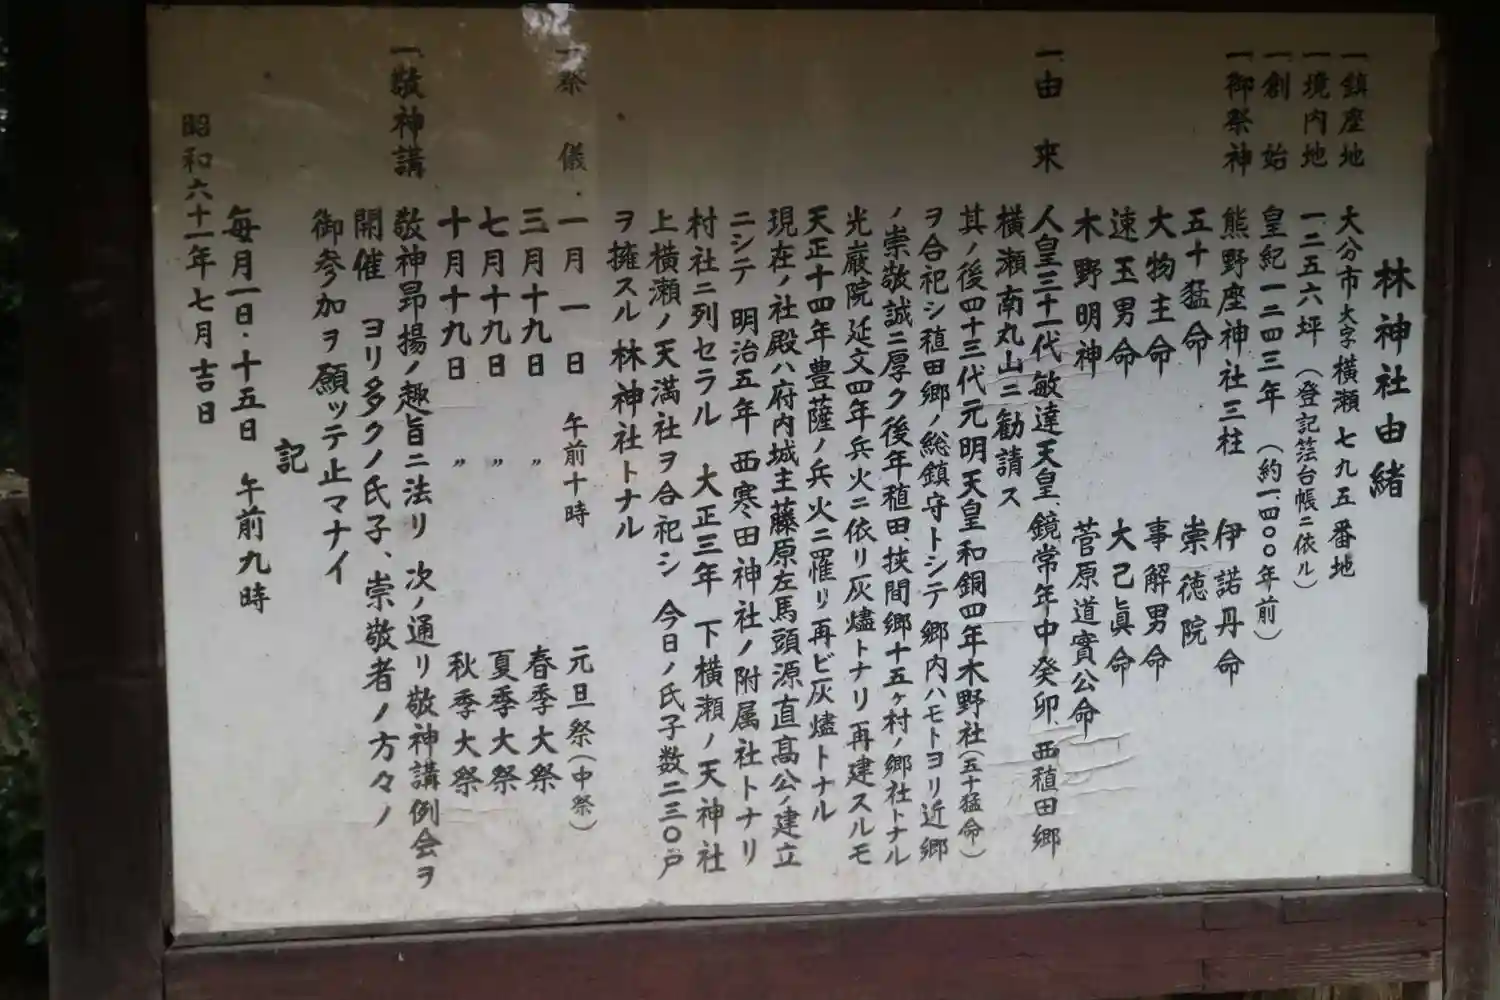 林神社由緒
一、鎮座地 大分市大字横瀬七九五番地
一、境内地 一二五六坪（登記簿台帳ニ依ル）
一、創始 皇紀一二四三年（約一、四〇〇年前）
一、御祭神 熊野座神社三柱 伊諾丹命
五十猛命 崇徳院
大物主命 事解男命
速玉男命 大己眞命
木野明神 菅原道實公命
一、由来 人皇三十一代敏達天皇 鏡常年中癸卯 西稙田郷
横瀬南丸山ニ勧請ス
其ノ後四十三代元明天皇和銅四年木野社（五十猛命）
ヲ合祀シ稙田郷ノ総鎮守トシテ郷内ハモトヨリ近郷
ノ崇敬誠ニ厚ク後年稙田、挟間郷十五ヶ村ノ郷社トナル
光厳院延文四年兵火ニ依リ灰燼トナリ再建スルモ
天正十四年豊薩ノ兵火ニ罹リ再ビ灰燼トナル
現在ノ社殿ハ府内城主藤原左馬頭源直髙公ノ建立
ニシテ 明治五年 西寒田神社ノ附属社トナリ
村社ニ列セラル 大正三年 下横瀬ノ天神社
上横瀬ノ天満社ヲ合祀シ 今日ノ氏子数二三〇戸
ヲ擁スル林神社トナル
一、祭儀 一月一日 午前十時 元旦祭（中祭）
三月十九日 〃 春季大祭
七月十九日 〃 夏季大祭
十月十九日 〃 秋季大祭
一、敬神講 敬神昻揚ノ趣旨ニ法リ 次ノ通リ敬神講例会ヲ
開催 ヨリ多クノ氏子、崇敬者ノ方々ノ
御参加ヲ願ッテ止マナイ
記
毎月一日・十五日 午前九時
昭和六十一年七月吉日